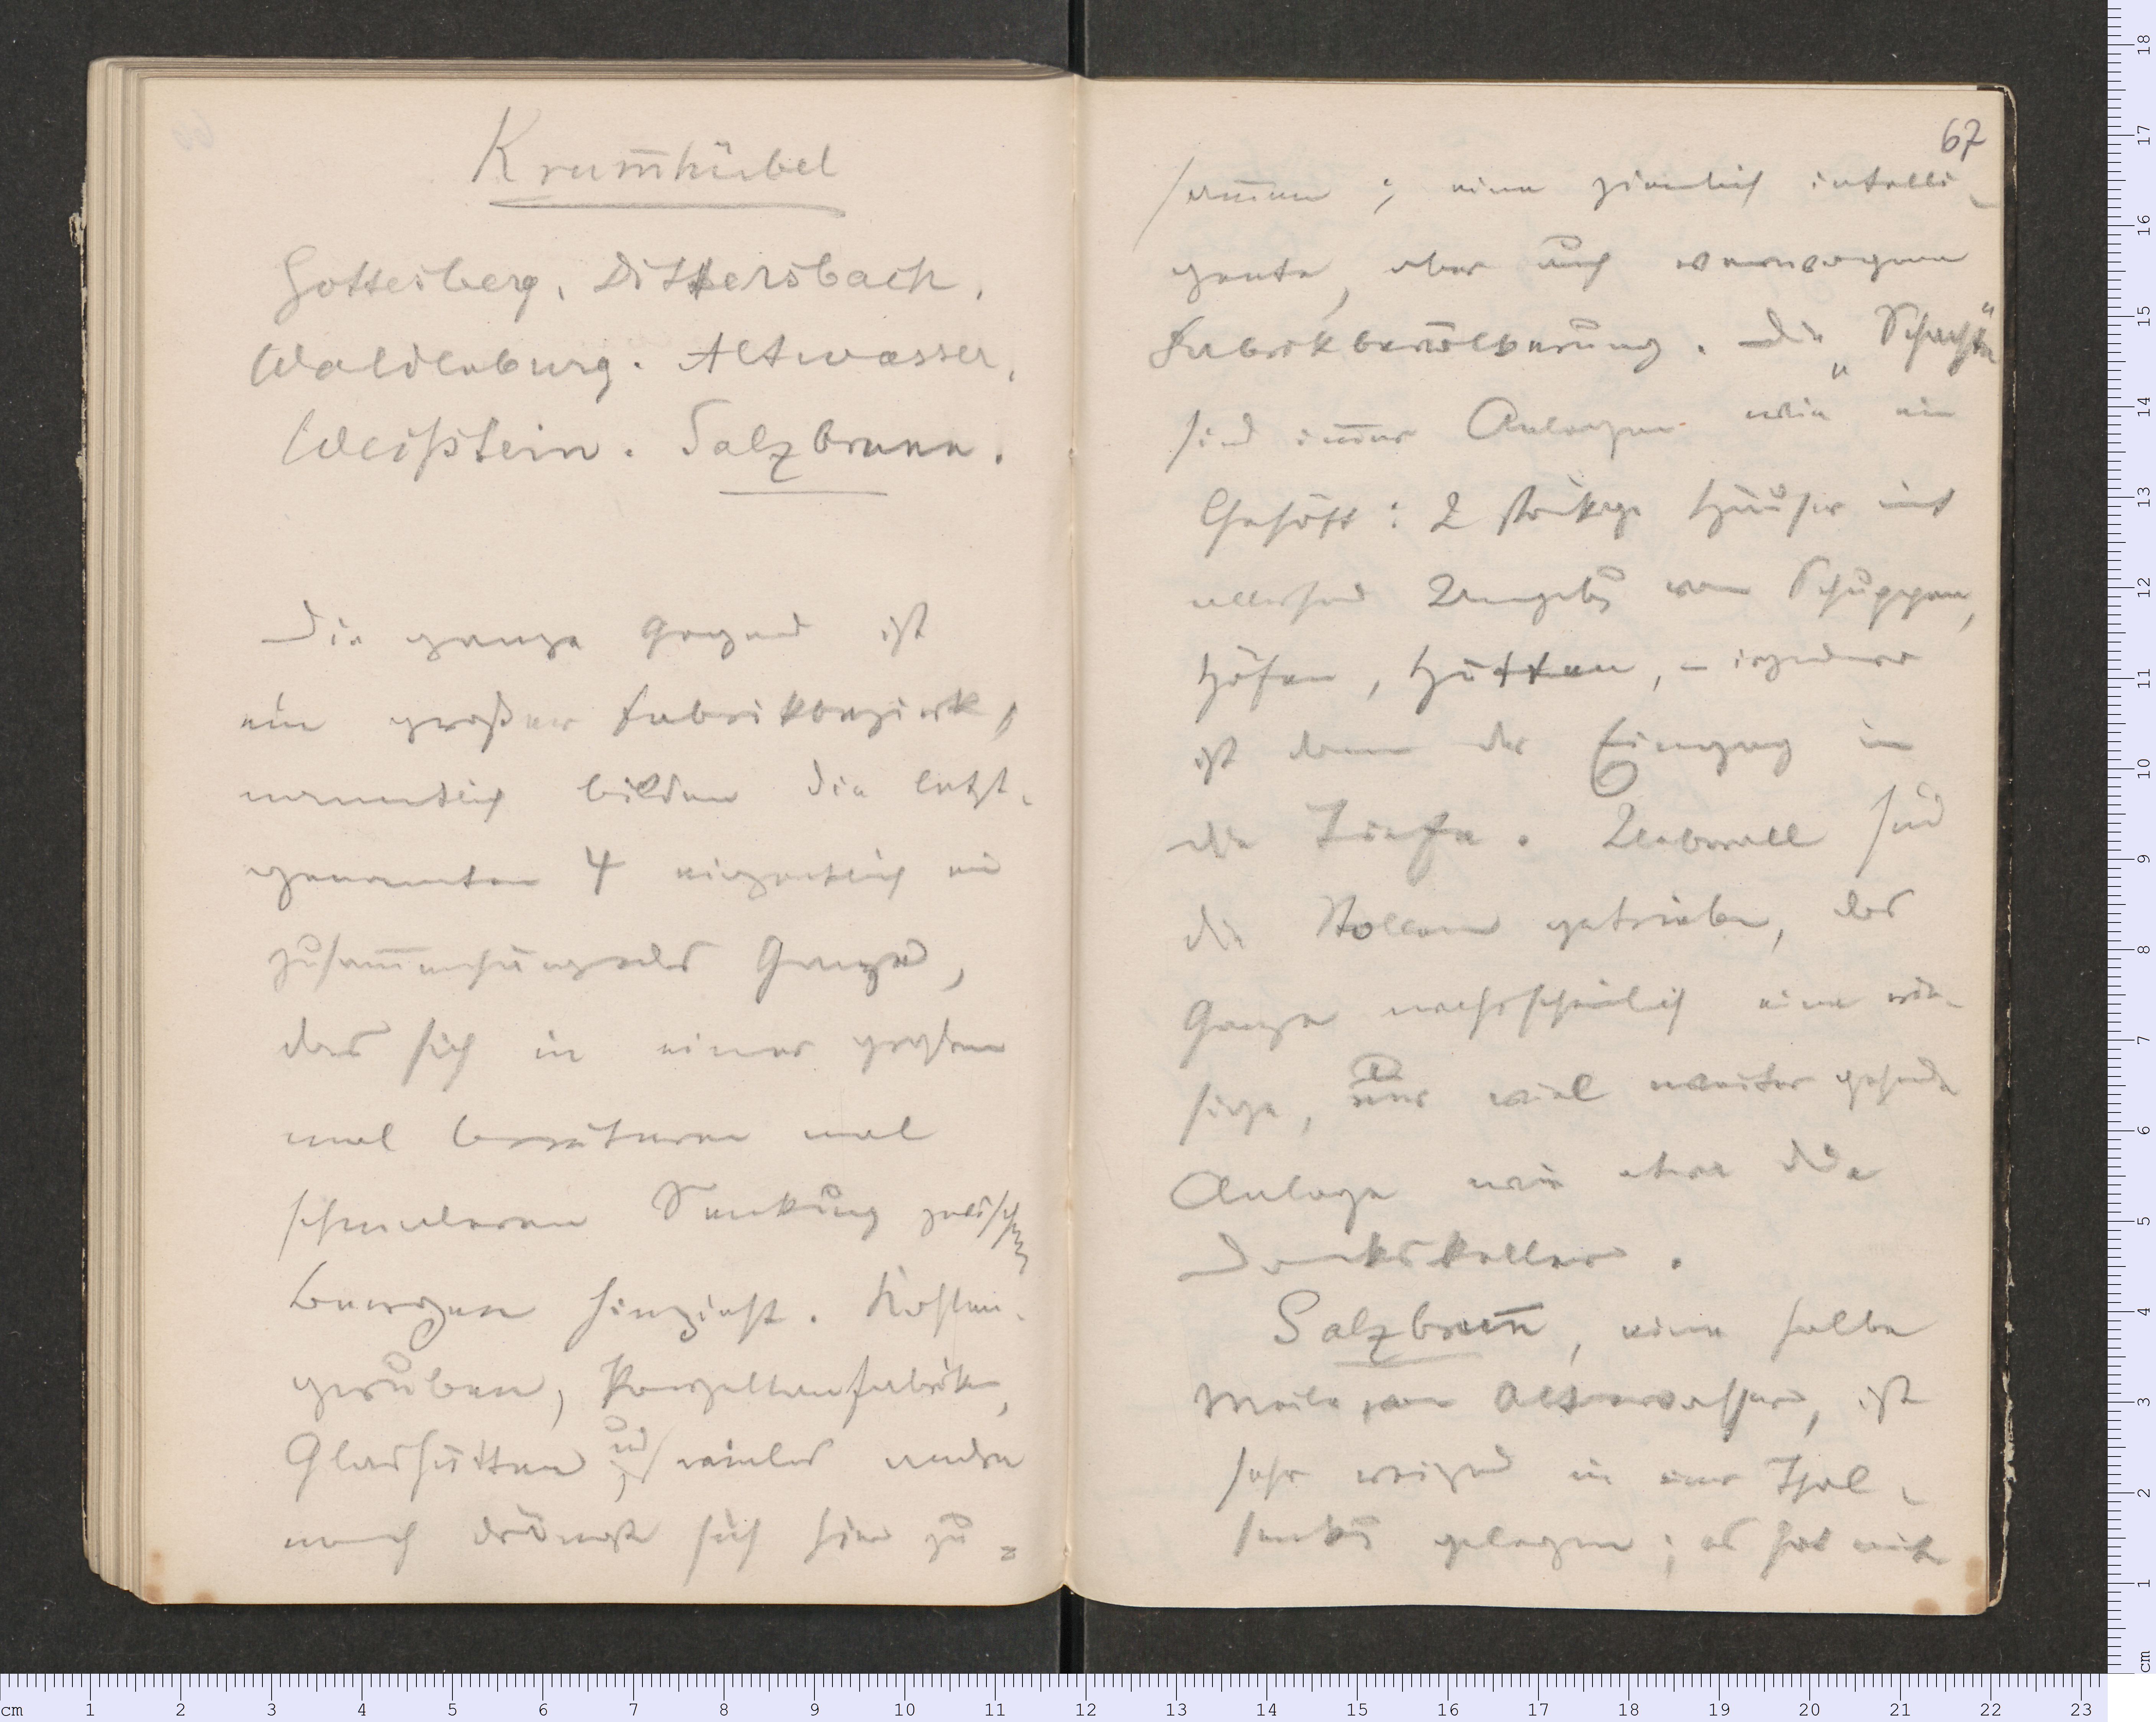 Krum̄hübel
Gottesberg, Dittersbach,
Waldenburg. Altwasser,
Weißstein. Salzbrunn.
Die ganze Gegend ist
ein großer Fabrikbezirk,
namentlich bilden die letzt-
genannten 4 eigentlich ein
zusam̄enhängendes Ganze,
das sich in einer großen
mal breiteren mal
schmaleren Senkung zwischen
Bergen hinzieht. Kohlen-
gruben, Porzellanfabriken,
Glashütten, und vieles andre
noch drängt sich hier zu=
67
sam̄en; eine ziemlich intelli-
gente, aber auch verwogene
Fabrikbevölkerung. Die „Schächte"
sind im̄er Anlagen wie ein
Gehöft: 2 stöckige Häuser mit
allerhand Umgebung von Schuppen,
Höfen, Hütten, – irgendwo
ist dann der Eingang in
die Tiefe. Ueberall sind
die Stollen getrieben, das
Ganze wahrscheinlich eine rie-
sige, nur viel weiter gehende
Anlage wie etwa die
Dankskeller.
Salzbrun̄, eine halbe
Meile von Altwasser, ist
sehr reizend in einer Thal-
senkung gelegen; es hat mich